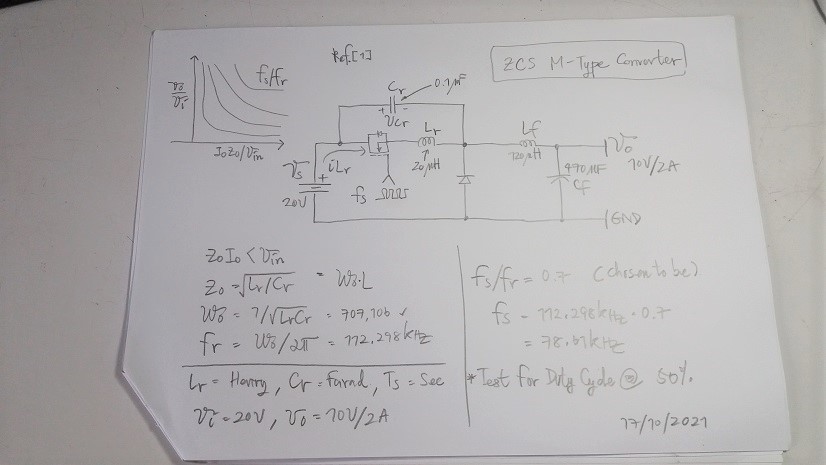 Ref.[1]
ZCS M-Type Converter
fs/fr
Vo/Vi
IoZo/Vin
Cr
0.1µF
+ -
VCr
Lr
20µH
Lf
120µH
Vo
10V/2A
470µF
Cf
Vs
+
20V
iLr
fs
GND
ZoIo < Vin
Zo = √Lr/Cr = Wo.L
Wo = 1/√LrCr = 707,106
fr = Wo/2π = 112.298kHz
Lr = Henry, Cr = Farad, Ts = Sec
Vi = 20V, Vo = 10V/2A
fs/fr = 0.7 (chosen to be)
fs = 112.298kHz . 0.7
= 78.61kHz
* Test for Duty Cycle @ 50%.
17/10/2021